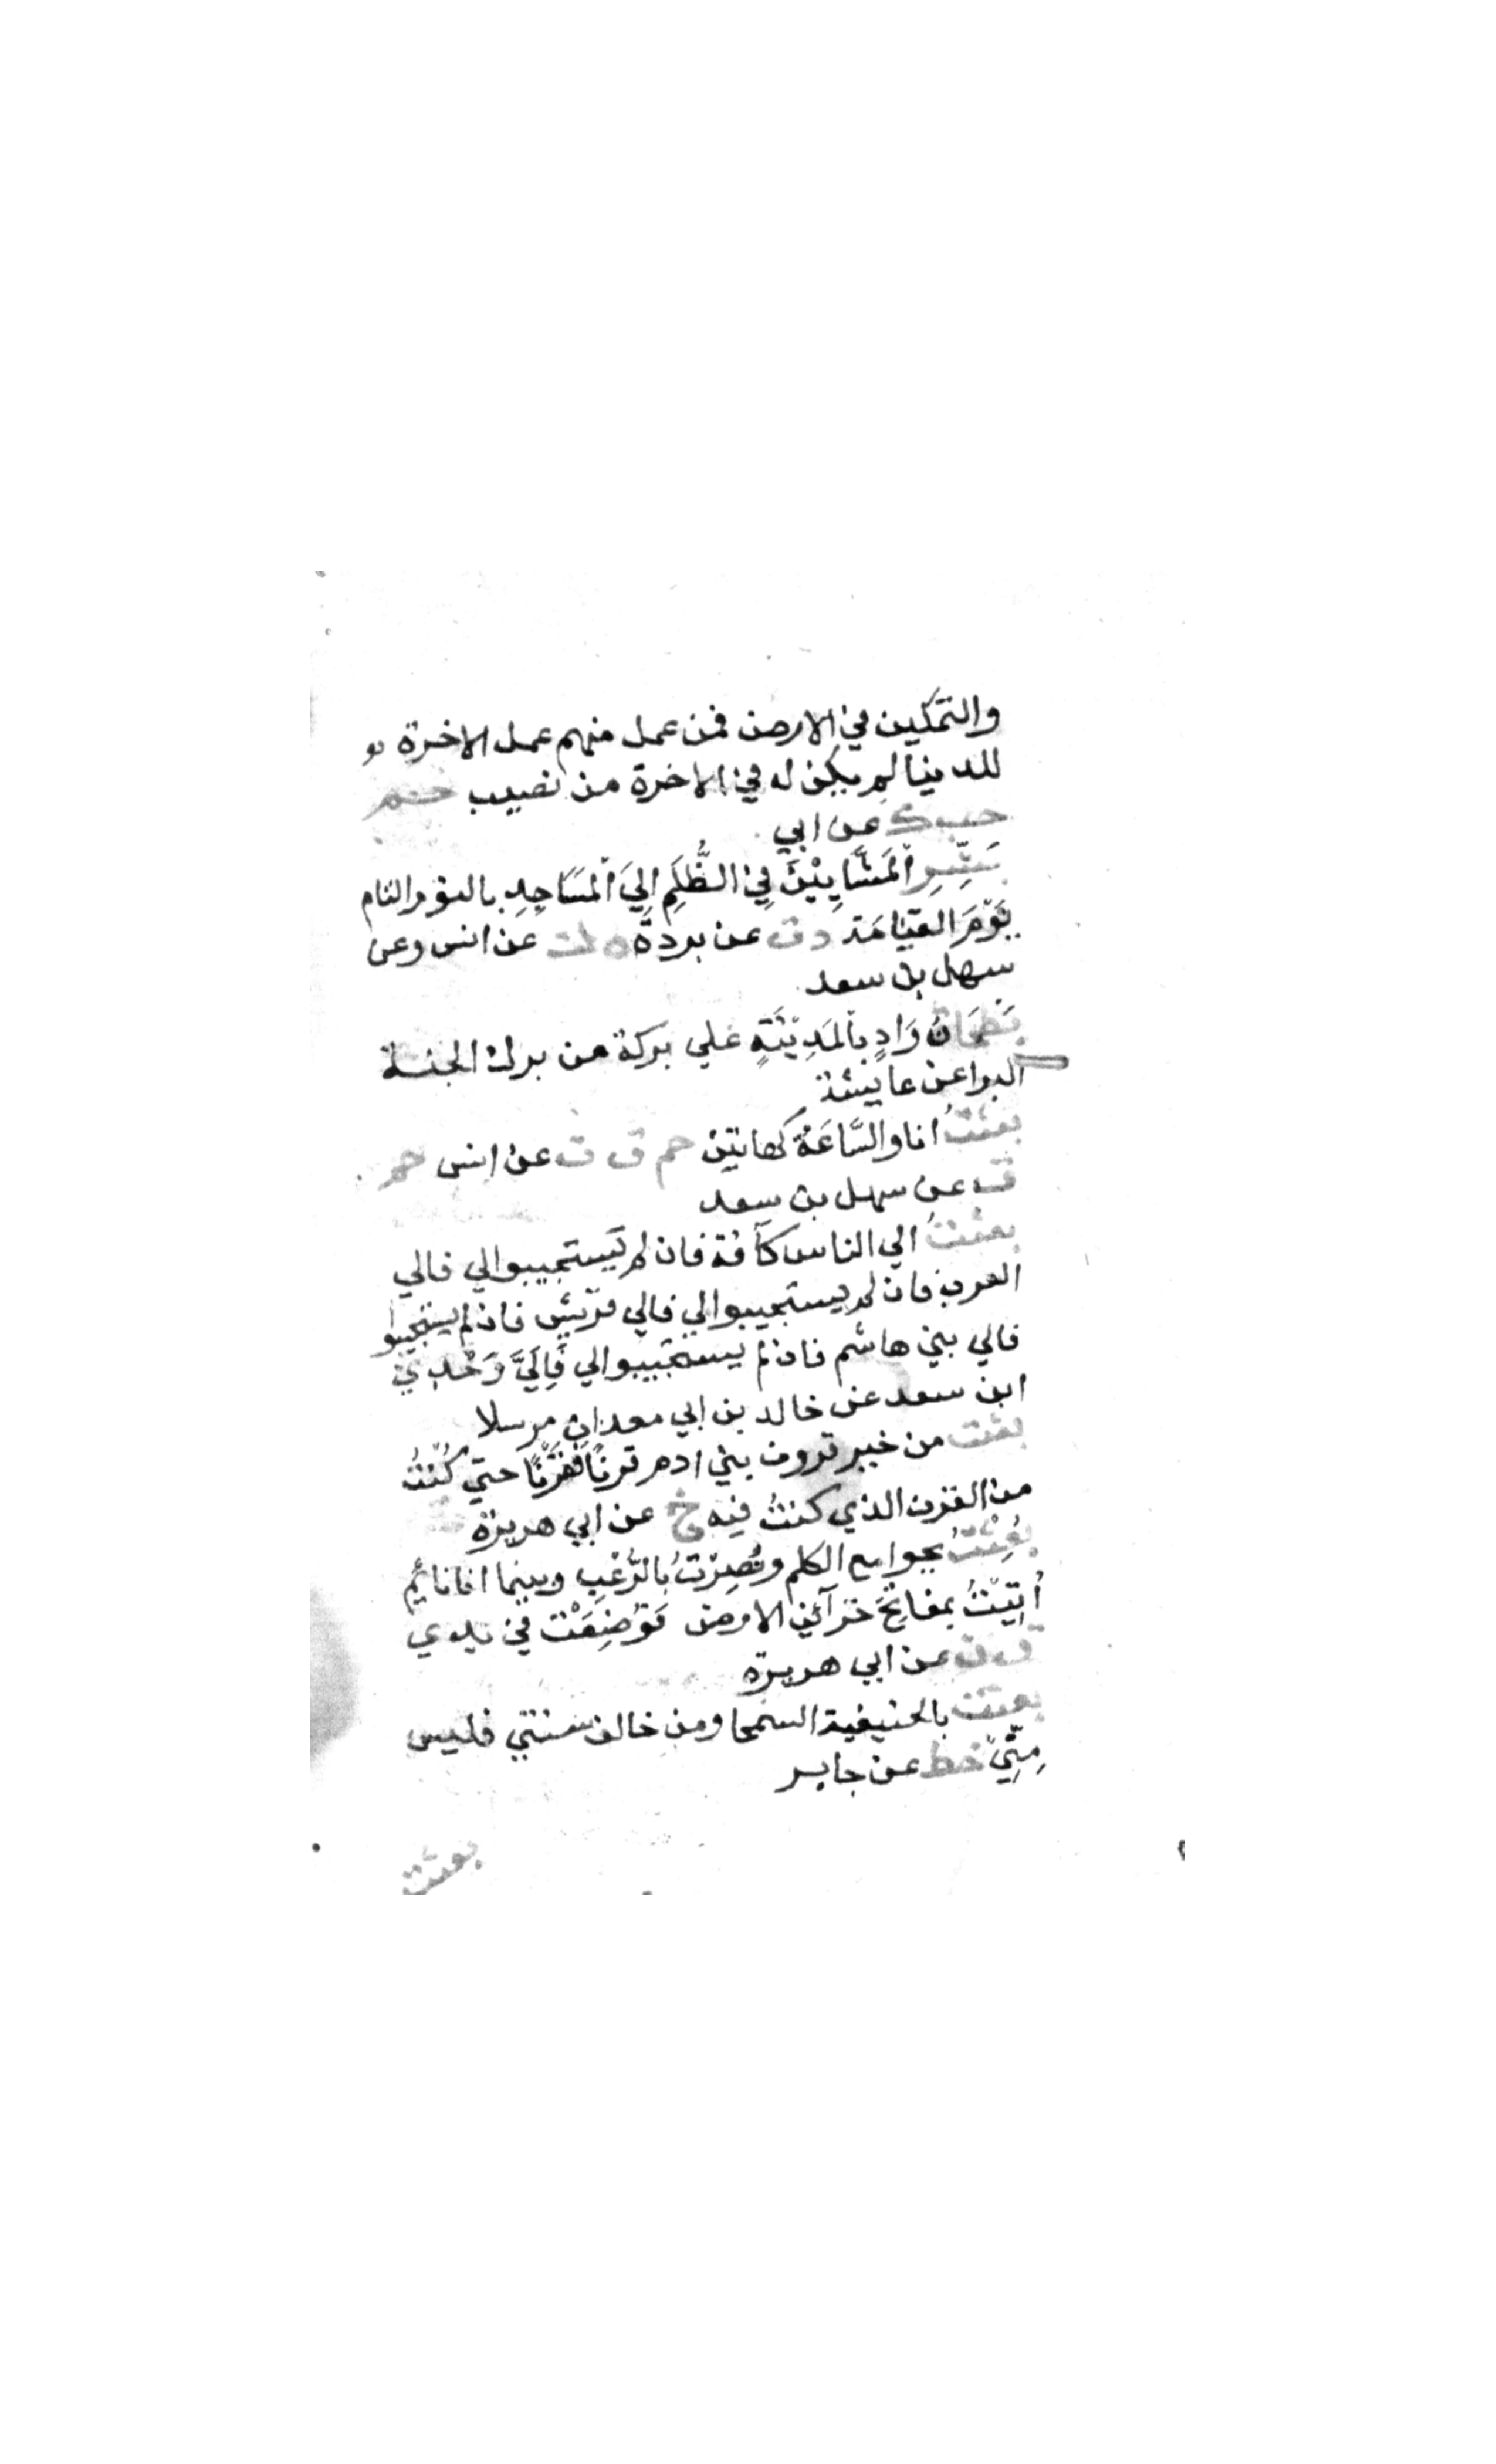 والتمكين في الارض فمن عمل منهم عمل الاخرة
للدنيا لم يكن له في الاخرة من نصيب حم
حب ك عن ابي
بَشِّرِ اْلمَشَّايِيْنَ فِي الظُّلَمِ اِليَ اْلمَسَاجِدِ بالنور التام
يَوْمَ القيَامَة د ت عن بردة ه ك عن انس وعن
سهل بن سعد
بَطحَانُ وَادٍ بِاْلمَدِيْنَةِ علي بركة من برك الجنة
البزا عن عايشة
بعثتُ انا والسَّاعَةُ كهاتين حم ق ت عن انس حم
ق عن سهل بن سعد
بعثتُ الي الناس كآفة فان لم يَستجيبوا لي فالي
العرب فان لم يستجيبوا لي فالي قريش فان لم يستجيبوا
فالي بني هاشم فان لم يستجيبوا لي فَاِلَيَّ وَحْدِيْ
ابن سعد عن خالد بن ابي معدان مرسلا
بعثت من خير قرون بني ادم قرنًا فقَرْنًا حتي كُنْتُ
من القرن الذي كنتُ فيه خ عن ابي هريرة
بُعِثْتُ بجوامع الكلم ونُصِرْتُ بالرُّعْبِ وبينما انا نائم
اُتِيْتُ بمفاتِحَ خزآئن الارض فَوُضِعَتْ في يدي
ق ن عن ابي هريرة
بعثت بالحنيفية السمحا ومن خالف سنتي فليس
مِنِّيْ خط عن جابر
بعثت